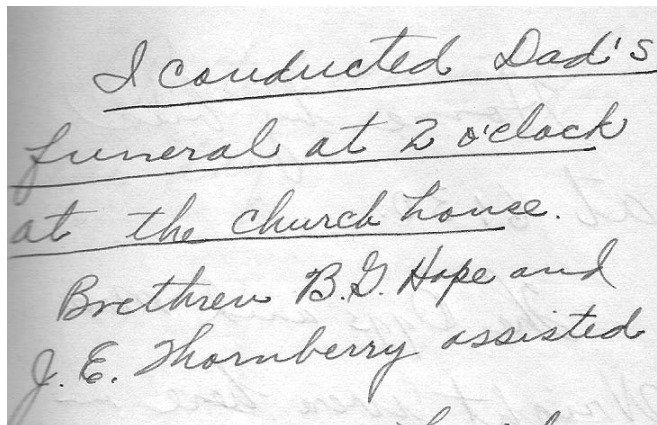 I conducted Dad's
funeral at 2 o'clock
at the church house.
Brethren B.G. Hope and
J. E. Thornberry assisted